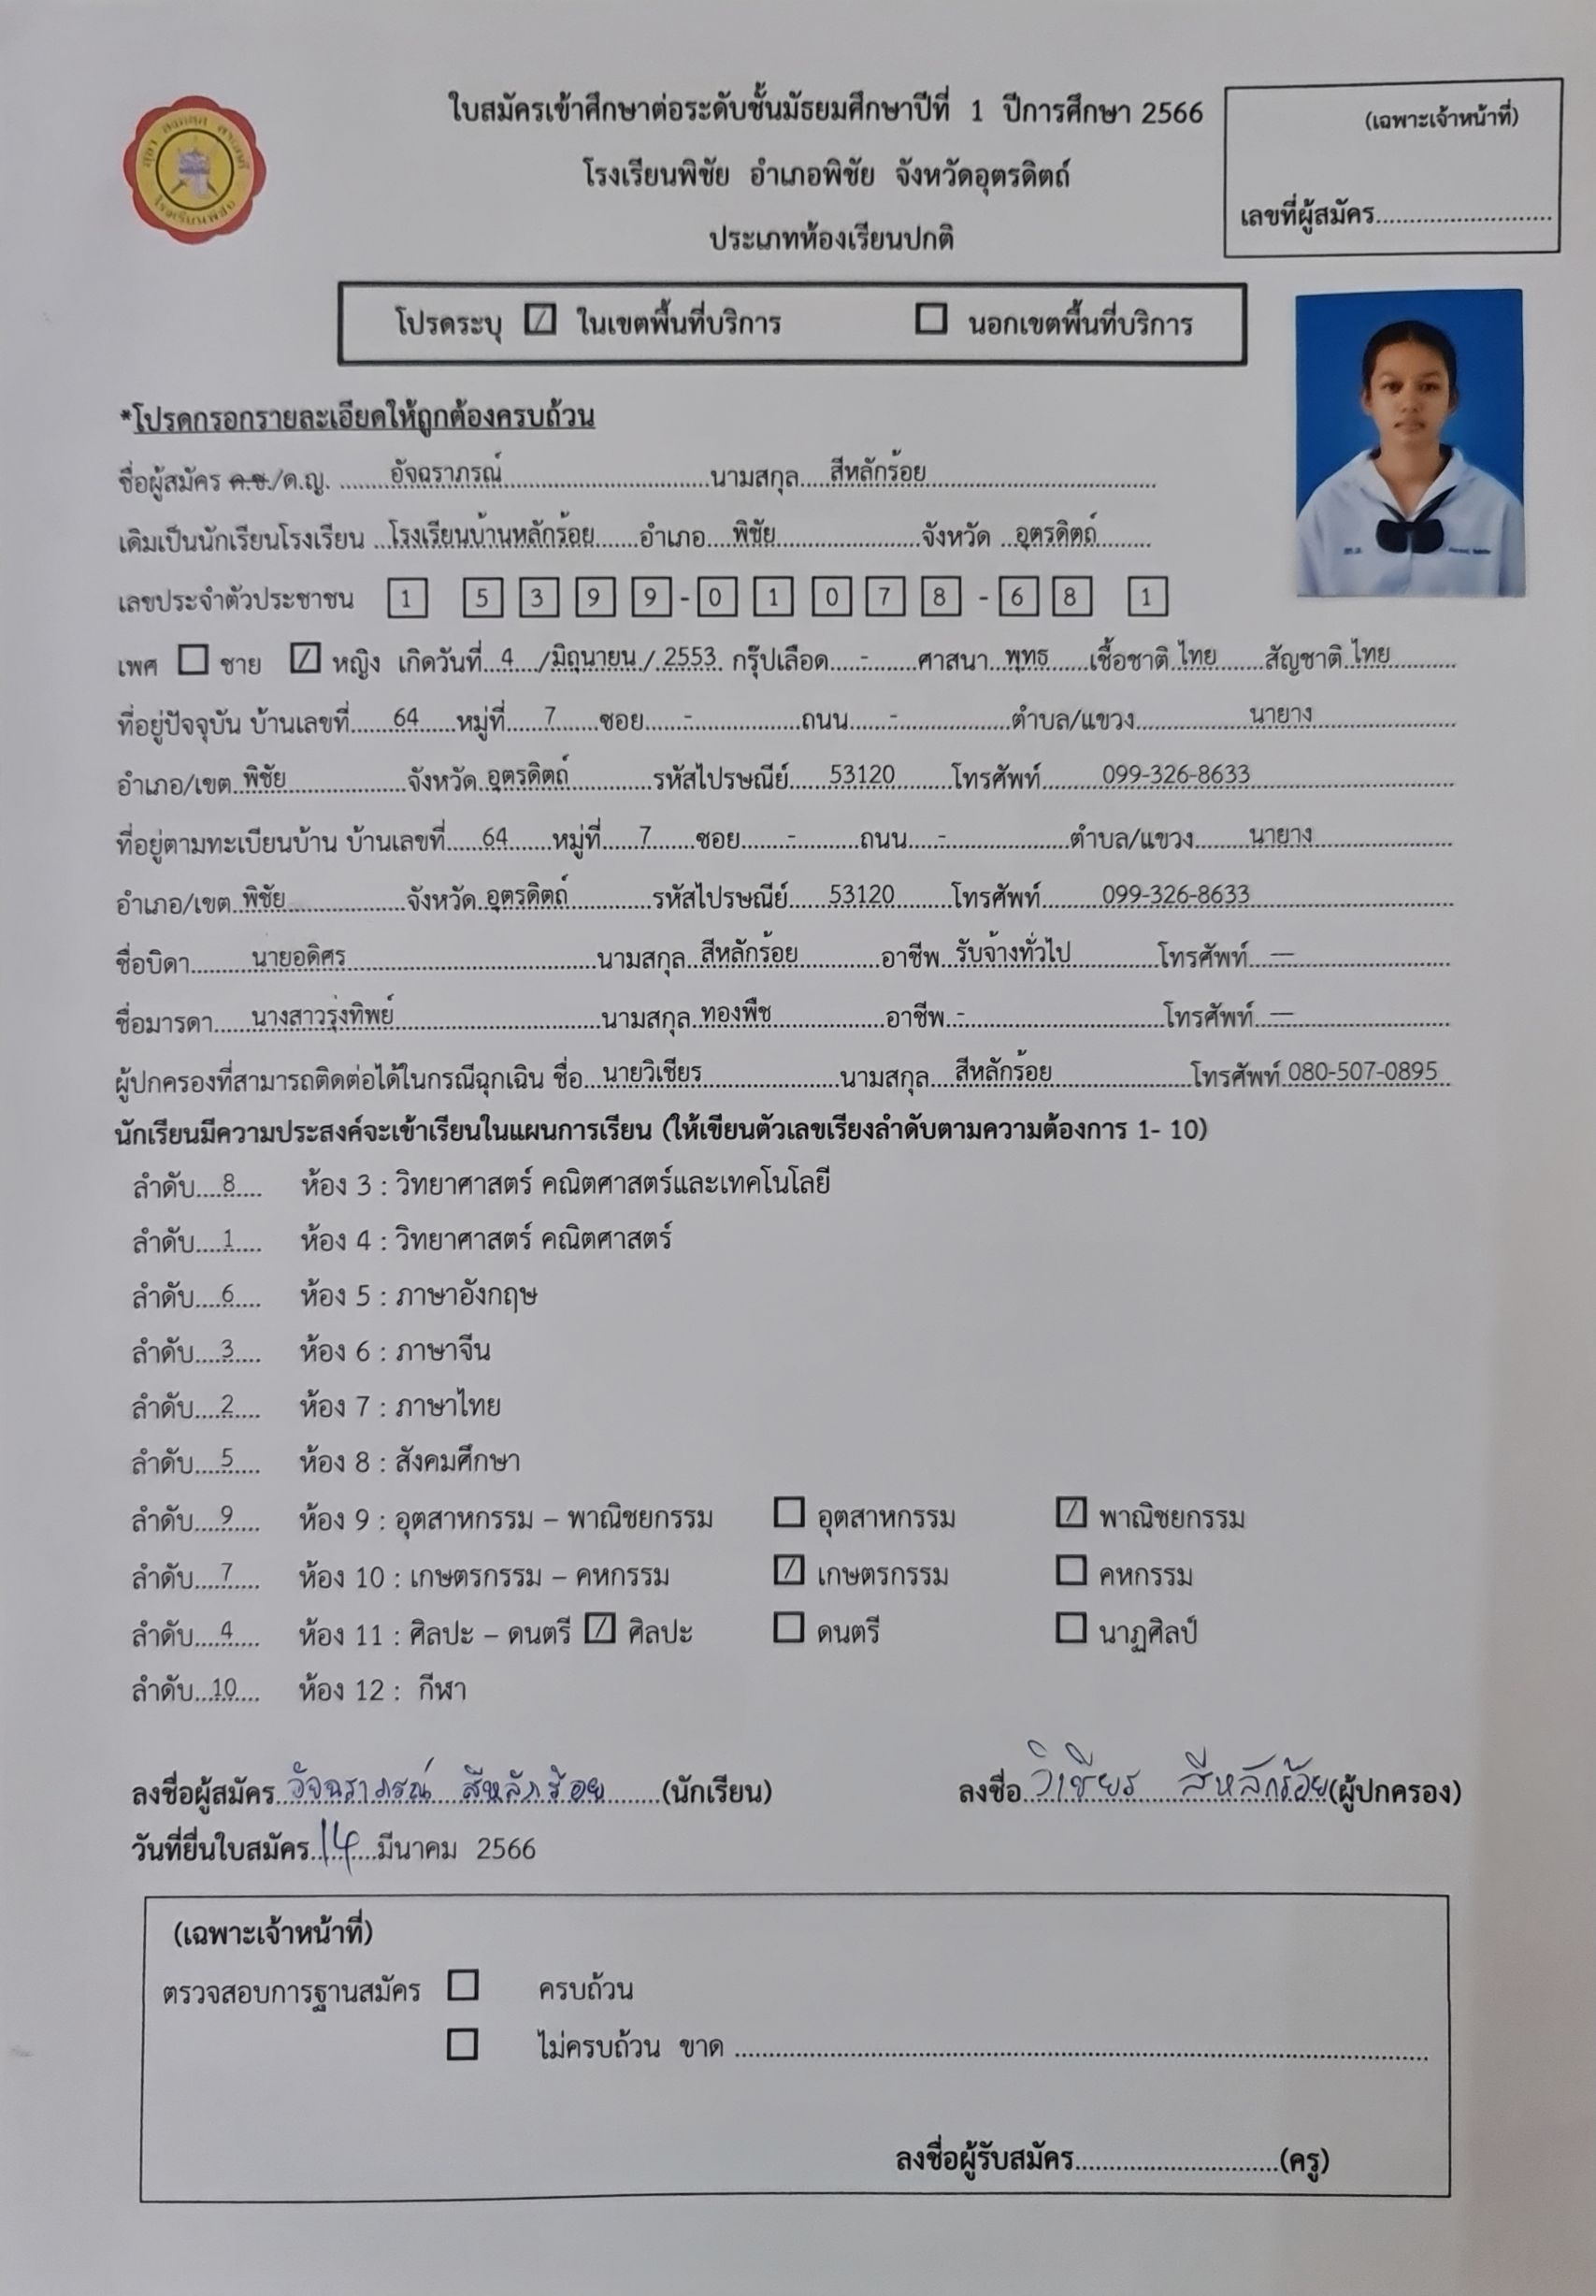 ใบสมัครเข้าศึกษาต่อระดับชั้นมัธยมศึกษาปีที่ 1 ปีการศึกษา 2566
(เฉพาะเจ้าหน้าที่)
โรงเรียนพิชัย อำเภอพิชัย จังหวัดอุตรดิตถ์
เลขที่ผู้สมัคร..........................
ประเภทห้องเรียนปกติ
โรงเรียนพิชัย
โปรดระบุ [/] ในเขตพื้นที่บริการ [ ] นอกเขตพื้นที่บริการ
*โปรดกรอกรายละเอียดให้ถูกต้องครบถ้วน
ชื่อผู้สมัคร ด.ช./ด.ญ. ........อัจฉราภรณ์........นามสกุล.....สีหลักร้อย........
เดิมเป็นนักเรียนโรงเรียน ...โรงเรียนบ้านหลักร้อย......อำเภอ....พิชัย........จังหวัด ..อุตรดิตถ์........
เลขประจำตัวประชาชน 1 5 3 9 9 - 0 1 0 7 8 - 6 8 1
เพศ [ ] ชาย [/] หญิง เกิดวันที่...4.../มิถุนายน/..2553. กรุ๊ปเลือด.....-.......ศาสนา...พุทธ......เชื้อชาติ.ไทย.......สัญชาติ.ไทย..........
ที่อยู่ปัจจุบัน บ้านเลขที่......64......หมู่ที่.....7......ซอย.....-........ถนน......-........ตำบล/แขวง........นายาง........
อำเภอ/เขต..พิชัย........จังหวัด..อุตรดิตถ์........รหัสไปรษณีย์......53120........โทรศัพท์.........099-326-8633........
ที่อยู่ตามทะเบียนบ้าน บ้านเลขที่.....64......หมู่ที่......7.......ซอย.......-.........ถนน.....-........ตำบล/แขวง........นายาง........
อำเภอ/เขต..พิชัย........จังหวัด..อุตรดิตถ์........รหัสไปรษณีย์......53120........โทรศัพท์.........099-326-8633........
ชื่อบิดา.........นายอดิศร........นามสกุล..สีหลักร้อย........อาชีพ..รับจ้างทั่วไป........โทรศัพท์...—........
ชื่อมารดา......นางสาวรุ่งทิพย์........นามสกุล.ทองพืช........อาชีพ..-........โทรศัพท์...—........
ผู้ปกครองที่สามารถติดต่อได้ในกรณีฉุกเฉิน ชื่อ...นายวิเชียร........นามสกุล....สีหลักร้อย........โทรศัพท์.080-507-0895..
นักเรียนมีความประสงค์จะเข้าเรียนในแผนการเรียน (ให้เขียนตัวเลขเรียงลำดับตามความต้องการ 1- 10)
ลำดับ....8..... ห้อง 3 : วิทยาศาสตร์ คณิตศาสตร์และเทคโนโลยี
ลำดับ....1..... ห้อง 4 : วิทยาศาสตร์ คณิตศาสตร์
ลำดับ....6..... ห้อง 5 : ภาษาอังกฤษ
ลำดับ....3..... ห้อง 6 : ภาษาจีน
ลำดับ....2..... ห้อง 7 : ภาษาไทย
ลำดับ....5..... ห้อง 8 : สังคมศึกษา
ลำดับ....9..... ห้อง 9 : อุตสาหกรรม – พาณิชยกรรม [ ] อุตสาหกรรม [/] พาณิชยกรรม
ลำดับ....7..... ห้อง 10 : เกษตรกรรม – คหกรรม [/] เกษตรกรรม [ ] คหกรรม
ลำดับ....4..... ห้อง 11 : ศิลปะ – ดนตรี [/] ศิลปะ [ ] ดนตรี [ ] นาฏศิลป์
ลำดับ...10.... ห้อง 12 : กีฬา
ลงชื่อผู้สมัคร..อัจฉราภรณ์ สีหลักร้อย........(นักเรียน) ลงชื่อ...วิเชียร สีหลักร้อย(ผู้ปกครอง)
วันที่ยื่นใบสมัคร..14....มีนาคม 2566
(เฉพาะเจ้าหน้าที่)
ตรวจสอบการฐานสมัคร [ ] ครบถ้วน
[ ] ไม่ครบถ้วน ขาด ........................................
ลงชื่อผู้รับสมัคร..............................(ครู)